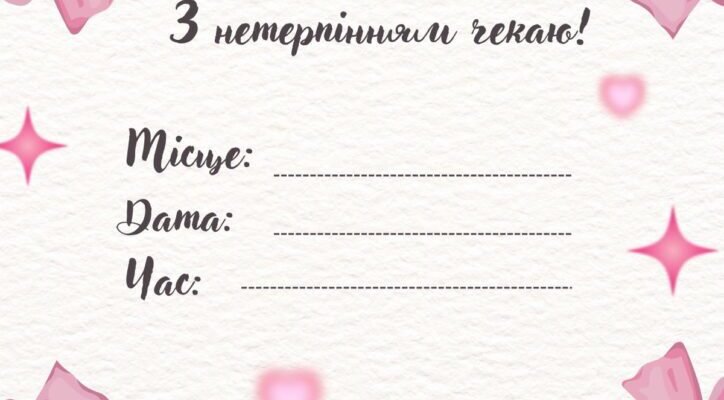 З нетерпінням чекаю!
Місце:
Дата:
Час: